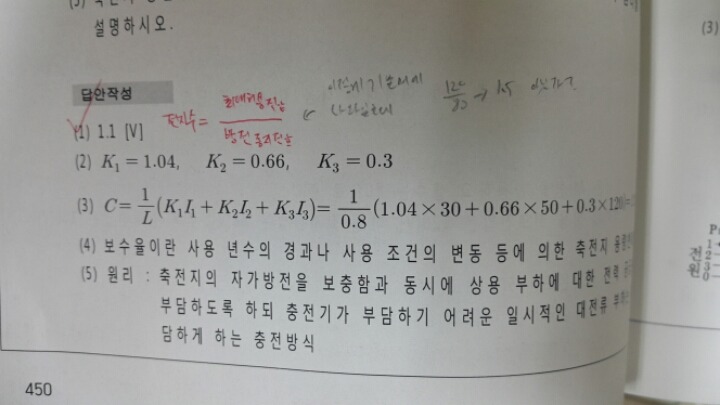 설명하시오.
(3)
답안작성
전지수 = 최대허용전압 / 방전종지전압
120/80 → 1.5
(1) 1.1 [V]
(2) K₁ = 1.04, K₂ = 0.66, K₃ = 0.3
(3) C = 1/L (K₁I₁ + K₂I₂ + K₃I₃) = 1/0.8 (1.04 × 30 + 0.66 × 50 + 0.3 × 120) =
(4) 보수율이란 사용 년수의 경과나 사용 조건의 변동 등에 의한 축전지 용량
(5) 원리 : 축전지의 자가방전을 보충함과 동시에 상용 부하에 대한 전력
부담하도록 하되 충전기가 부담하기 어려운 일시적인 대전류
담하게 하는 충전방식
전
원
1
2
3
0
450